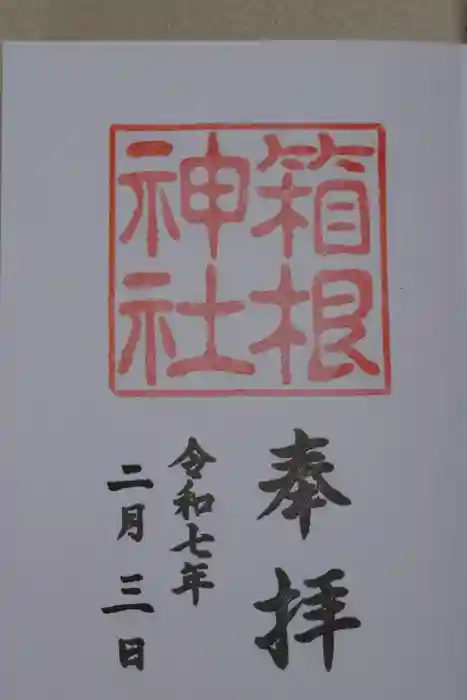 箱根
神社
奉拝
令和七年
二月三日